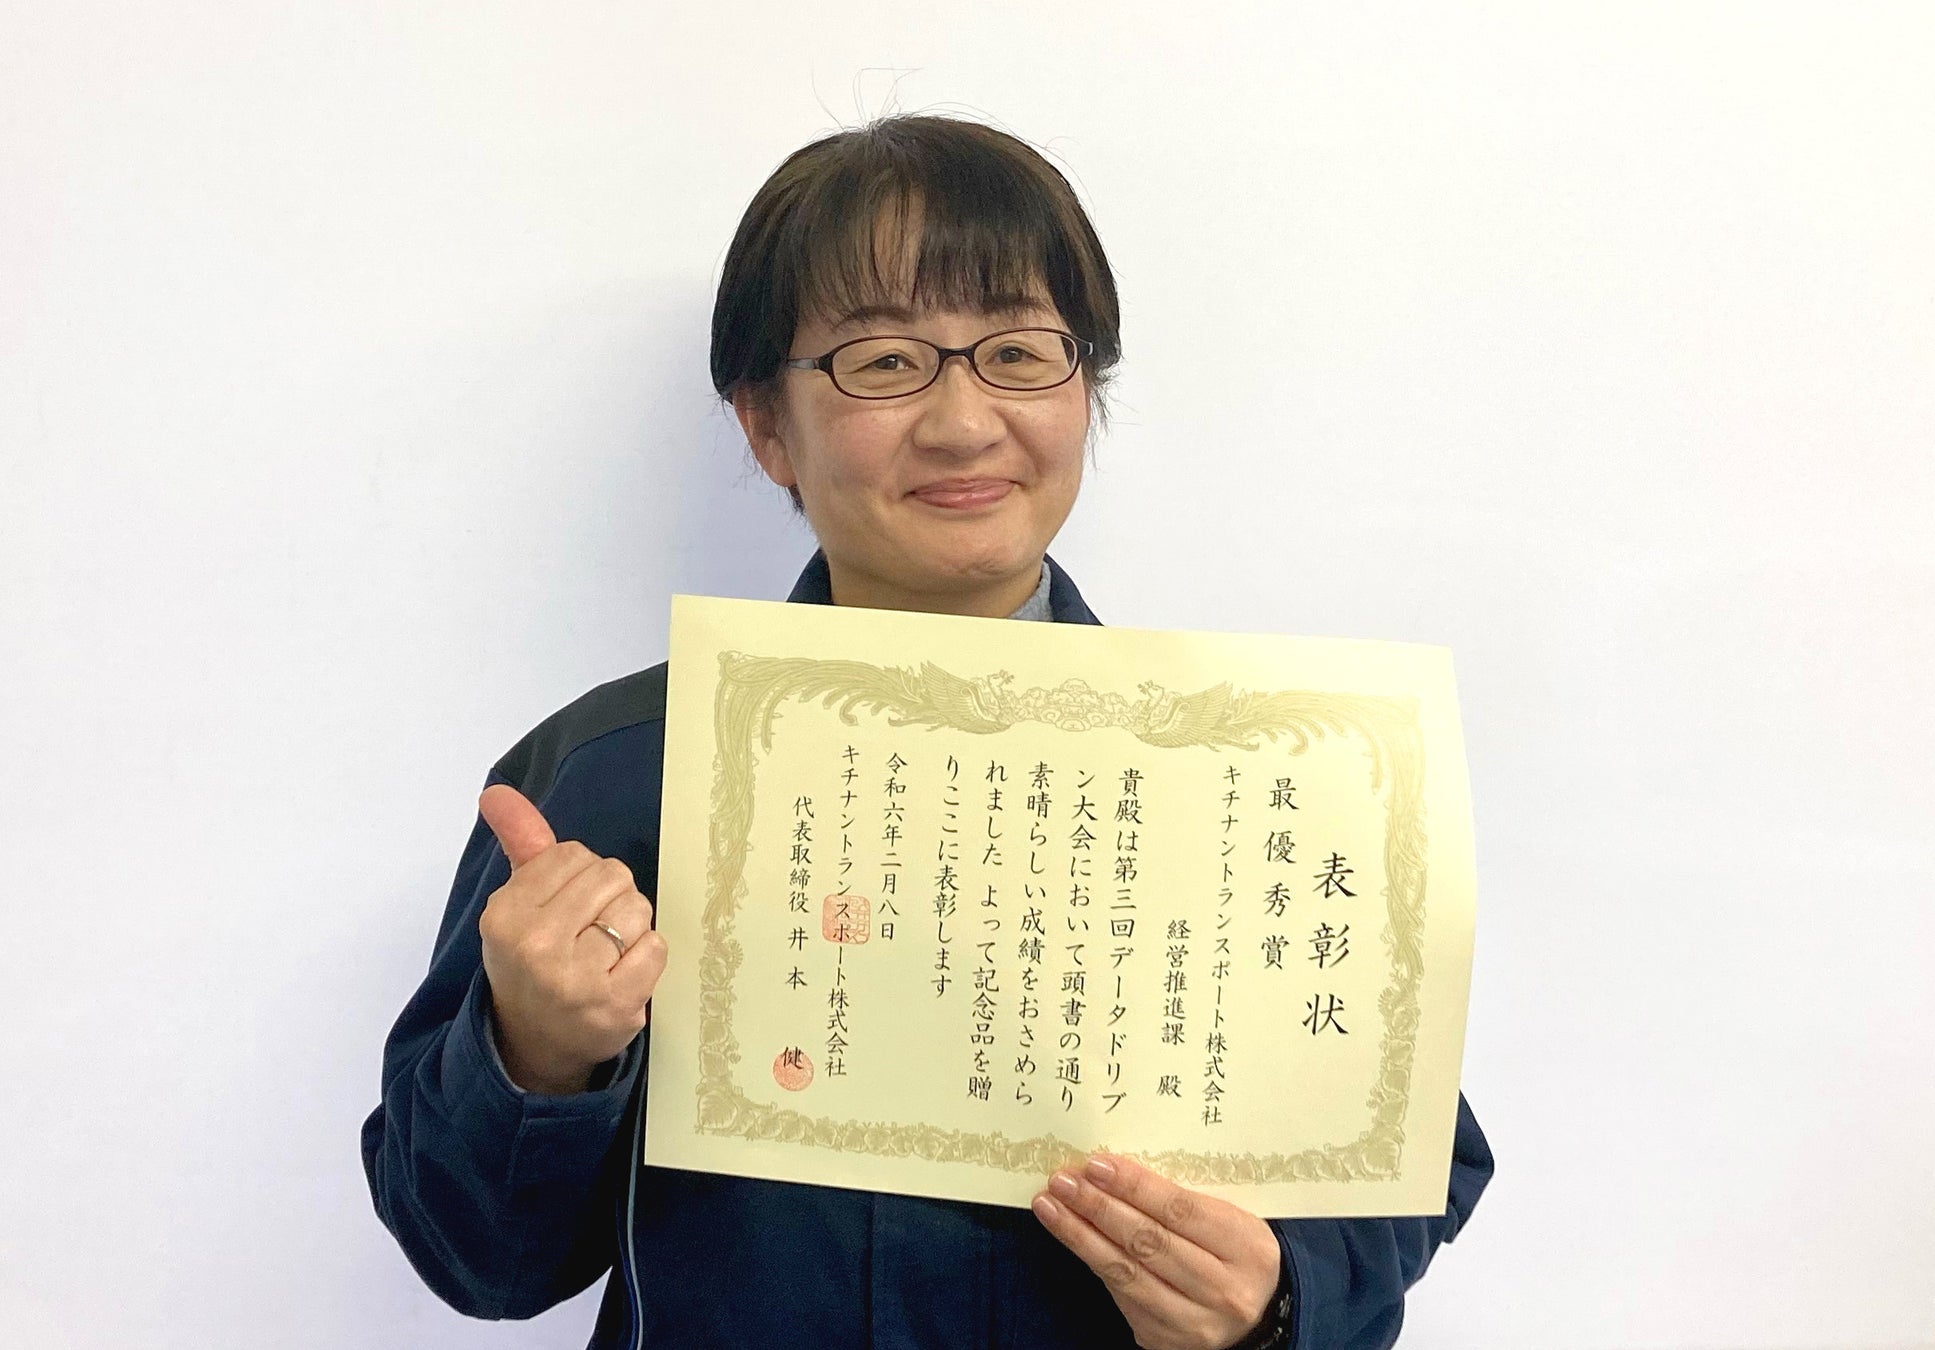 表彰状
最優秀賞
キチナントランスポート株式会社
経営推進課 殿
貴殿は第三回データドリブ
ン大会において頭書の通り
素晴らしい成績をおさめら
れました よって記念品を贈
りここに表彰します
令和六年二月八日
キチナントランスポート株式会社
代表取締役 井本 健